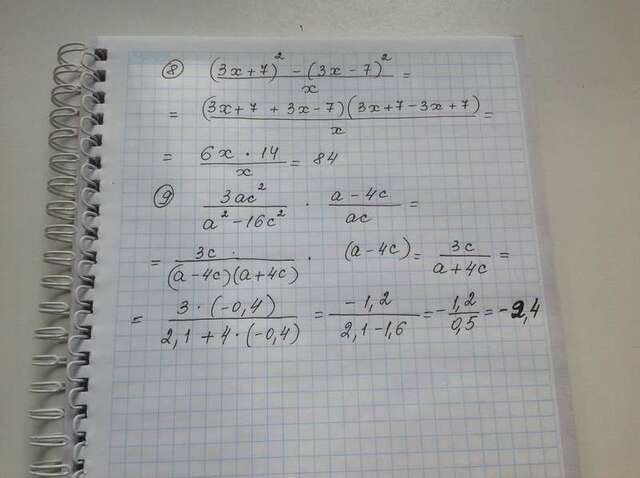 ⑧ ((3x+7)² - (3x-7)²)/x =
= ((3x+7 + 3x-7)(3x+7-3x+7))/x =
= (6x · 14)/x = 84
⑨ 3ac²/(a² - 16c²) · (a-4c)/ac =
= 3c ·/((a-4c)(a+4c)) · (a-4c) = 3c/(a+4c) =
= (3 · (-0,4))/(2,1 + 4 · (-0,4)) = (-1,2)/(2,1-1,6) = -1,2/0,5 = -2,4